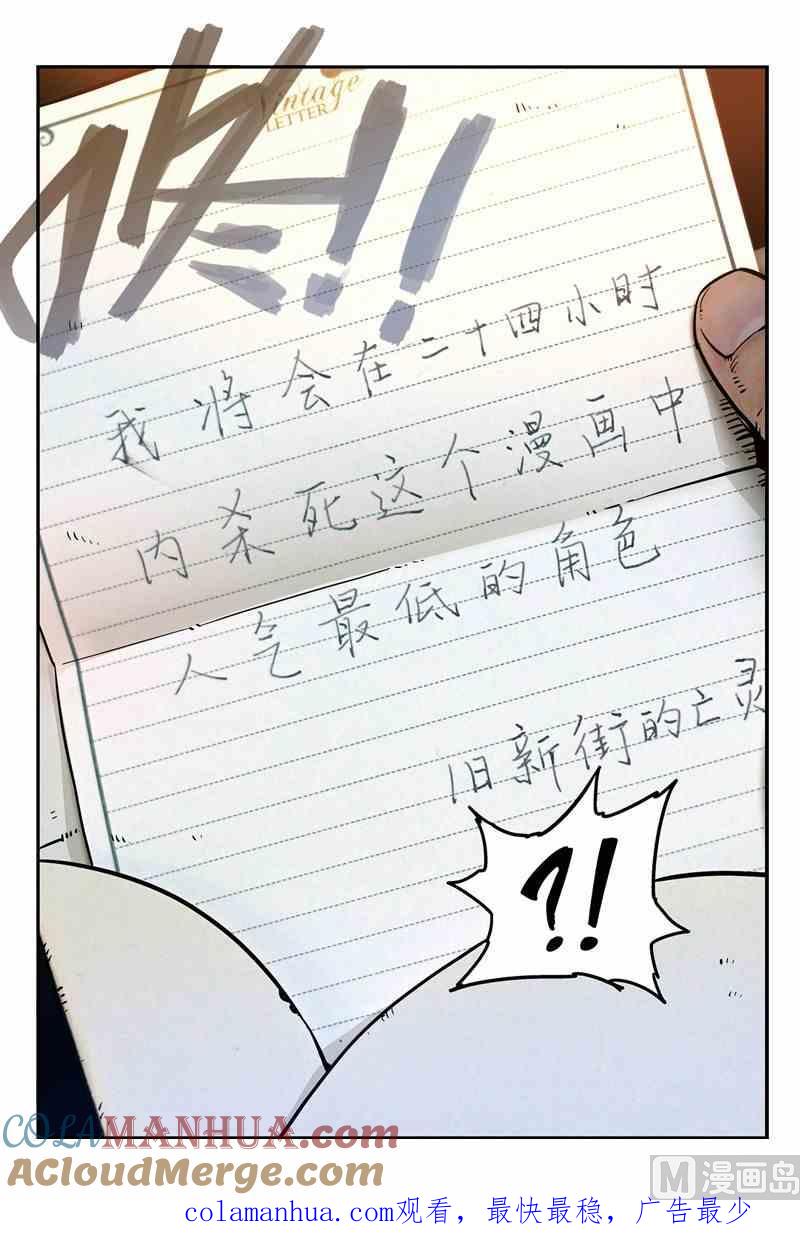 Vintage
LETTER
咚!!
我将会在二十四小时
内杀死这个漫画中
人气最低的角色
旧新街的亡灵
?!
COLAMANHUA.com
ACloudMerge.com
M 漫画岛
colamanhua.com观看，最快最稳，广告最少